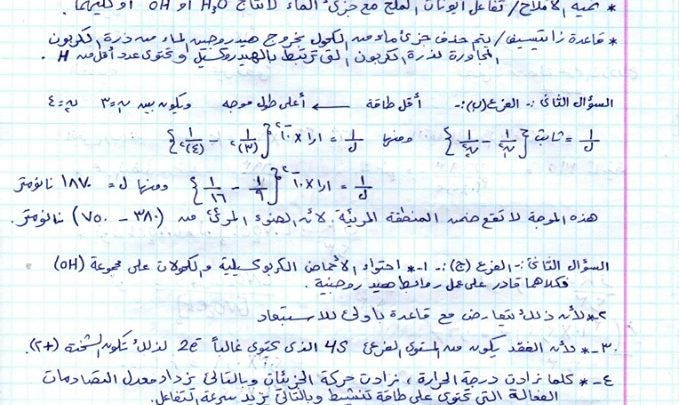 * تميه الأملاح / تفاعل ايونات الملح مع جزئ الماء لانتاج H₃O أو OH أو كليهما
* قاعدة زايتسيف / يتم حذف جزئ ماء من الكحول بخروج هيدروجين الماء من ذرة الكربون
المجاورة لذرة الكربون التي ترتبط بالهيدروكسيل وتحتوي عدد أقل من H.
السؤال الثاني :- الفرع (ب) :- أقل طاقة ← أعلى طول موجه ويكون بين ن=٣ ن=٤
١/ل = ثابت {١/ن² - ١/ن²} ومنها ١/ل = ١ر١×١٠⁻² {١/(٣)² - ١/(٤)²}
١/ل = ١ر١×١٠⁻² {١/٩ - ١/١٦} ومنها ل = ١٨٧٠ نانومتر
هذه الموجة لا تقع ضمن المنطقة المرئية. لأن الضوء المرئي من (٣٨٠ - ٧٥٠) نانومتر.
السؤال الثاني :- الفرع (ج) :- ١-* احتواء الأحماض الكربوكسيلية والكحولات على مجموعة (OH)
فكلاهما قادر على عمل روابط هيدروجنية.
٢-* لأن ذلك يتعارض مع قاعدة باولي للاستبعاد
٣-* لأن الفقد يكون من المستوى الفرعي 4S الذي يحتوي غالباً 2e لذلك تكون الشحنة (+٢).
٤-* كلما زادت درجة الحرارة، زادت حركة الجزيئات وبالتالي تزداد معدل التصادمات
الفعالة التي تحتوي على طاقة تنشيط وبالتالي تزيد سرعة التفاعل.